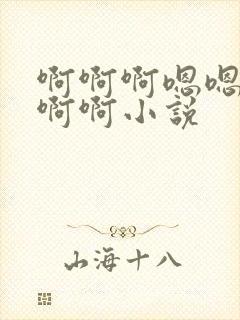 啊啊啊嗯嗯
啊啊小説
山海十八